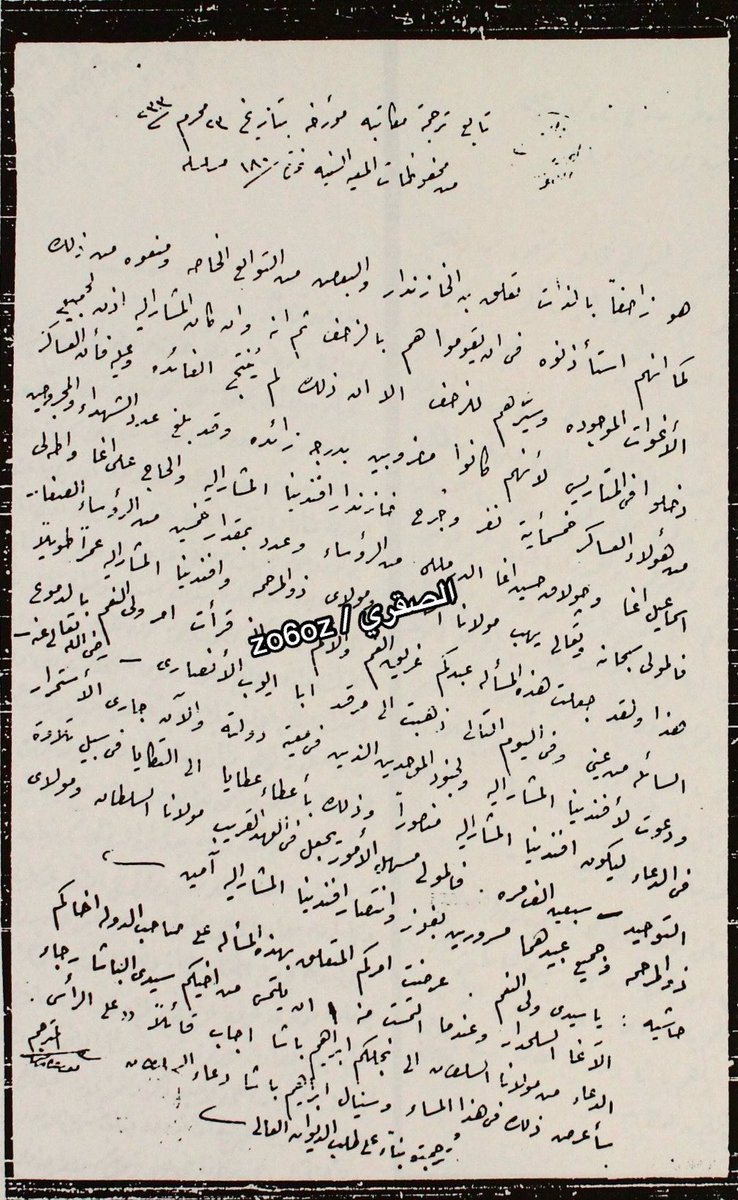 تابع ترجمة مكاتبه مؤرخه بتاريخ ٢٣ محرم ٢٣٣
من محفوظات المعيه السنيه ١٨٠
هو زاحفاً بالذات تعلق به الخازندار والبعض من التوابع الخاصه ومنعوه من ذلك
كما انهم استأذنوه فى ان يقوموا هم بالزحف ثم انه وان كان المشاراليه اذن لجميع
الأغوات الموجوده وسيّرهم للزحف الا ان ذلك لم يُنتج الفائده وعليه فأن العساكر
دخلوا فى المتاريس لأنهم كانوا مضروبين بدرجه زائده وقد بلغ عدد الشهداء والمجروحين
من هؤلاء العساكر خمسمأية نفر وجُرح خازندار افندينا المشاراليه والحاج على اغا
اسماعيل اغا وچولاق حسين اغا من الرؤساء وعدد بمقدار خمسين من الرؤساء
فالمولى سبحانه وتعالى يهب مولانا مولاى ذو المرحمه وافندينا المشاراليه عمراً طويلاً
هذا ولقد جعلت هذه المسأله عبدكم غريق الغم والألم قرأت امر ولى النعم بالدموع
السائله من عينى وفى اليوم التالى ذهبت الى مرقد ابا ايوب الأنصارى - رضى الله تعالى عنه -
ودعوت لأفندينا المشاراليه ولجنود الموحدين الذين فى معية دولته والآن جارى الأستمرار
فى الدعاء ليكون افندينا المشاراليه منصوراً وذلك بأعطاء عطايا الى التكايا فى سبيل تلاوة
التوحيد سبعين الف مره . فالمولى مسهل الأمور يجعل فى العهد القريب مولانا السلطان ومولاى
ذو المرحمه وجميع عبيدهما مسرورين بفوز وانتصار افندينا المشاراليه آمين
حاشيه : ياسيدى ولى النعم . عرضت امركم المتعلق بهذه المسأله على صاحب الدوله اخاكم
الآغا السلحدار وعندما التمست منه ان يلتمس من اخيكم سيدى الباشا رجاء
الدعاء من مولانا السلطان الى نجلكم ابراهيم باشا اجاب قائلاً «على الرأس .
سأعرض ذلك فى هذا المساء وسينال ابراهيم باشا دعاء
ترجمته بناء على طلب الديوان العالى
المترجم
الصقري / zo6oz